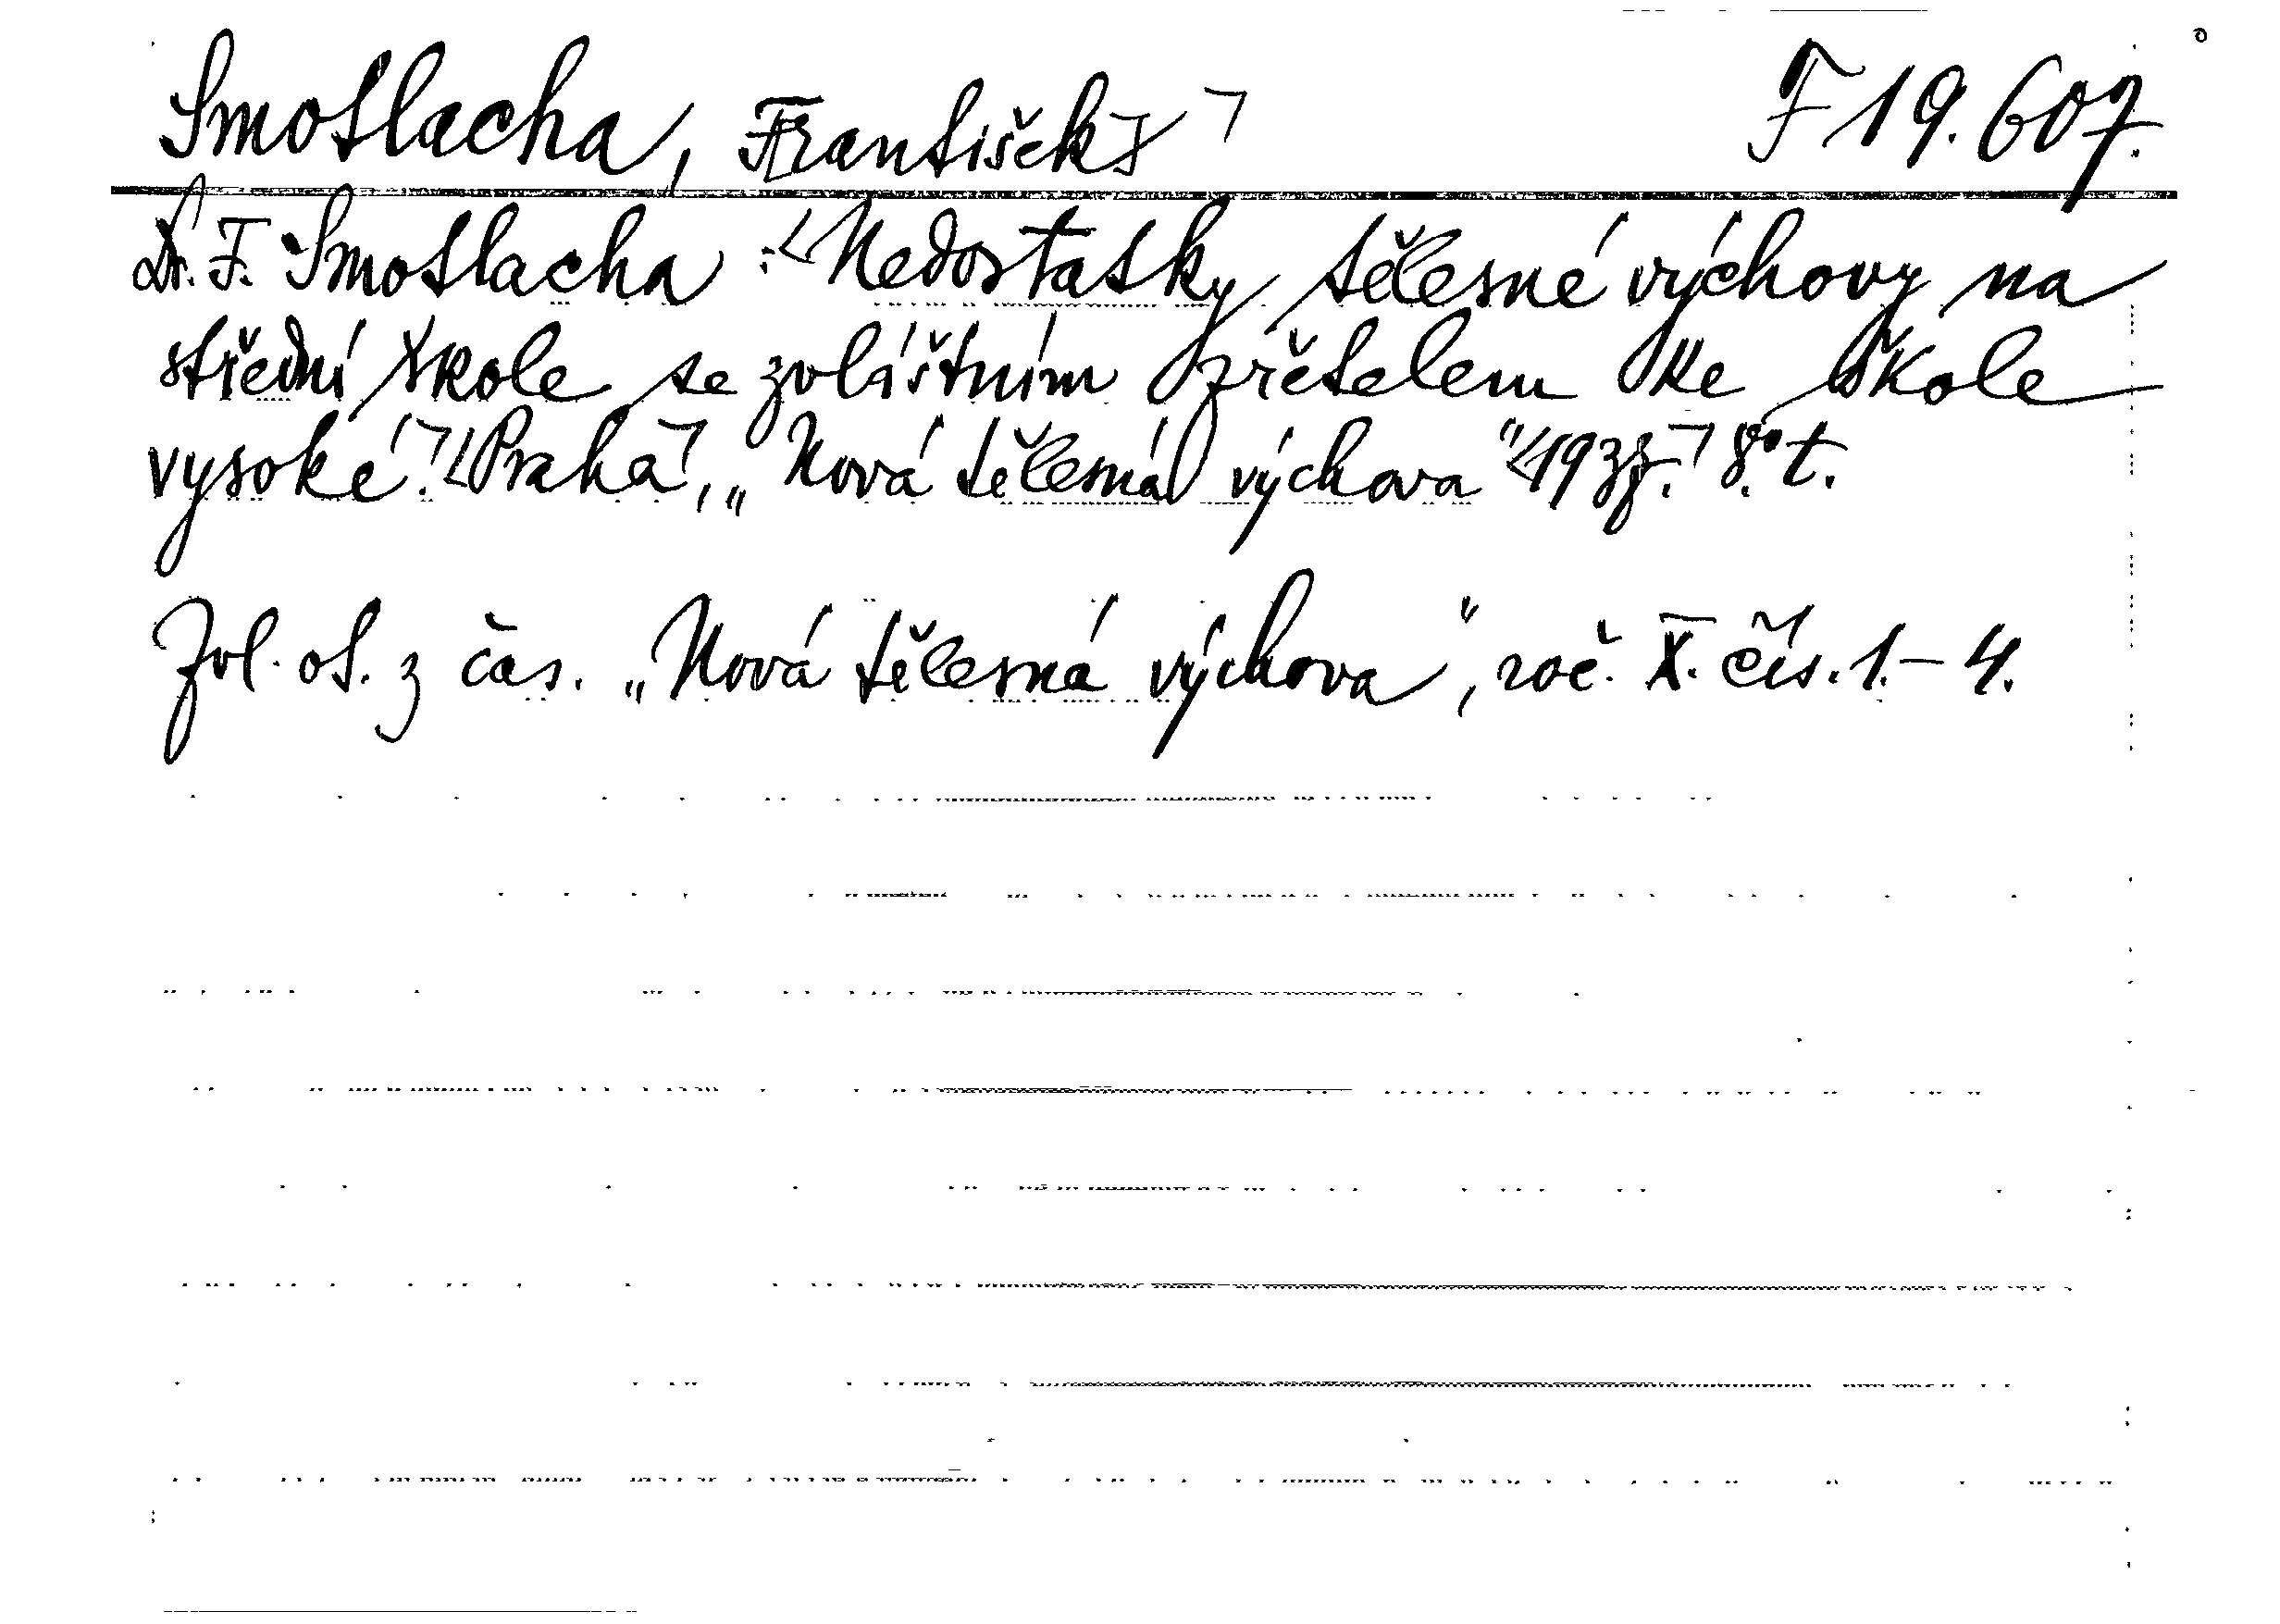 Smotlacha, František F 19.607.
Dr. F. Smotlacha: Nedostatky tělesné výchovy na
střední škole se zvláštním zřetelem ke škole
vysoké. Praha, „Nová tělesná výchova"
8.° t.
Zvl. ot. z čas. „Nová tělesná výchova", roč. X. čís. 1.–4.